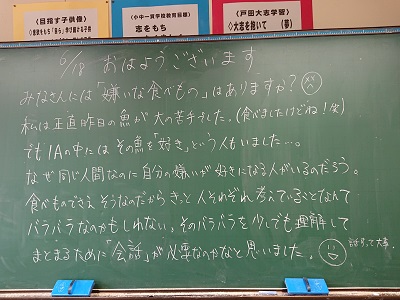 〈目指す子供像〉
〈小中一貫学校教育目標〉
志をもち
〈戸田大志学習〉
◇大志を抱いて (夢)
6/18 おはようございます
みなさんには「嫌いな食べもの」はありますか？
私は正直昨日の魚が大の苦手でした。(食べましたけどね！笑)
でも1Aの中にはその魚を「好き」という人もいました…。
なぜ同じ人間なのに自分の嫌いが好きになる人がいるのだろう。
食べものでさえそうなのだからきっと人それぞれ考えていることなんて
バラバラなのかもしれない。そのバラバラを少しでも理解して
まとまるために「会話」が必要なのかなと思いました。
対話って大事。